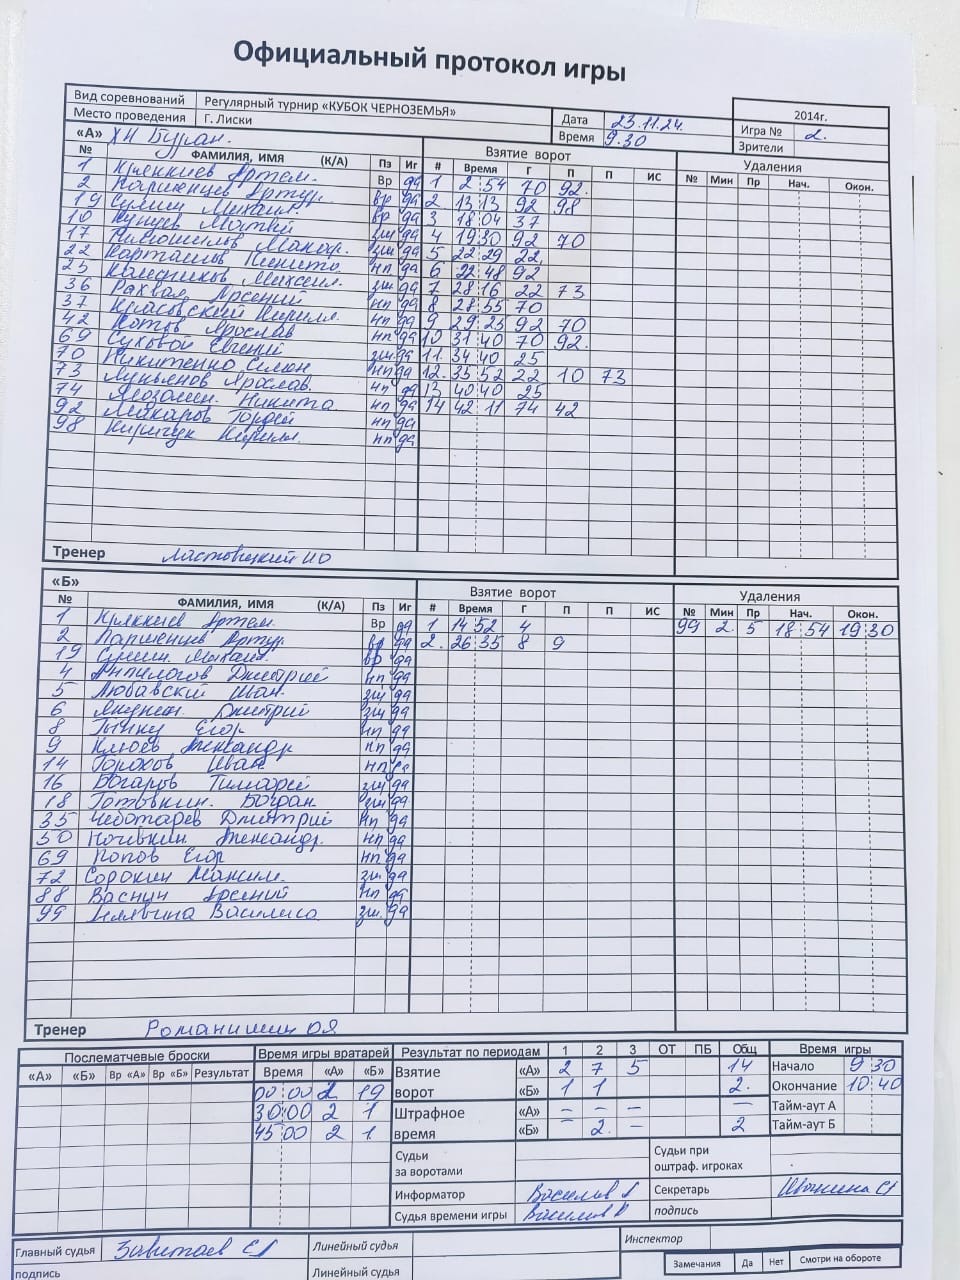 Официальный протокол игры
Вид соревнований Регулярный турнир «КУБОК ЧЕРНОЗЕМЬЯ» Дата 23.11.24. 2014г.
Место проведения Г. Лиски Время 9.30 Игра № 2.
Зрители
«А» ХК Буран. Взятие ворот Удаления
№ ФАМИЛИЯ, ИМЯ (К/А) Пз Иг # Время Г П П ИС № Мин Пр Нач. Окон.
1 Артем. Вр да 1 2 54 70 92.
2 Паршенцев Артур. вр да 2 13 13 92 98
19 Михаил. вр да 3 18 04 37
10 Матвей зщ да 4 19 30 92 70
17 Макар. зщ да 5 22 29 22.
22 Карташов Никита нп да 6 22 48 92
25 Максим. зщ да 7 28 16 22 73
36 Арсений нп да 8 28 55 70
37 Красовский Кирилл нп да 9 29 25 92 70
42 Котов Ярослав нп да 10 31 40 70 92.
69 Суховой Евгений зщ да 11. 34 40 25
70 Никитенко Семён нп да 12. 35 52 22 10 73
73 Лукьянов Ярослав. нп да 13 40 40 25
74 Никита нп да 14 42 11 74 42
92 Макаров Гордей нп да
98 Киричук Кирилл. нп да
Тренер
«Б» Взятие ворот Удаления
№ ФАМИЛИЯ, ИМЯ (К/А) Пз Иг # Время Г П П ИС № Мин Пр Нач. Окон.
1 Артем. Вр да 1 14 52 4 99 2. 5 18 54 19 30
2 Паршенцев Артур. вр да 2. 26 35 8 9
19 Михаил. вр да
4 Анпилогов Дмитрий нп да
5 Любавский Иван. зщ да
6 Дмитрий зщ да
8 Егор нп да
9 Клюев Александр нп да
14 Горохов Иван нп да
16 Богаров Тимофей зщ да
18 Готовкин. Богдан зщ да
35 Чеботарев Дмитрий нп да
50 Кочивкин Александр. нп да
69 Попов Егор нп да
72 Сорокин Максим. зщ да
88 Васнин Арсений нп да
99 Василиса зщ. да
Тренер Романишин О.Я
Послематчевые броски Время игры вратарей Результат по периодам 1 2 3 ОТ ПБ Общ Время игры
«А» «Б» Вр «А» Вр «Б» Результат Время «А» «Б» Взятие ворот «А» 2 7 5 14 Начало 9 30
00 00 2 19 «Б» 1 1 2. Окончание 10 40
30 00 2 1 Штрафное время «А» – – – – Тайм-аут А
45 00 2 1. «Б» – 2. – 2 Тайм-аут Б
Судьи за воротами Судьи при оштраф. игроках
Информатор Василив Секретарь
Судья времени игры Василив подпись
Главный судья Линейный судья Инспектор
подпись Линейный судья Замечания Да Нет Смотри на обороте